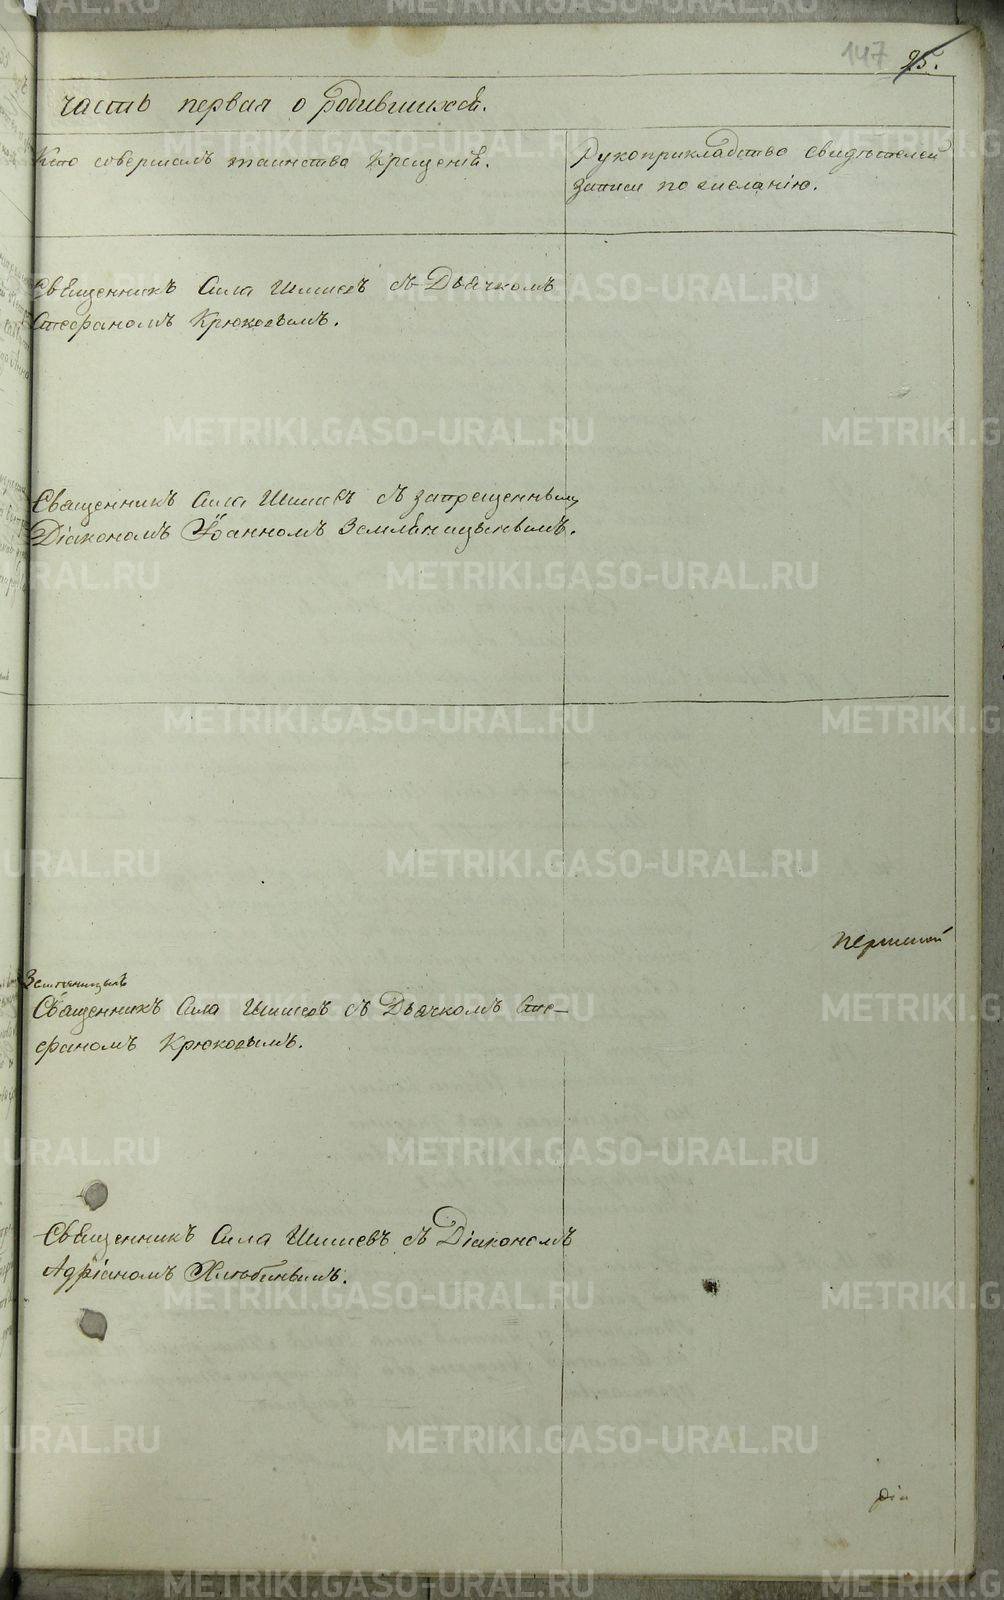 147 25.
часть первая о родившихся.
Кто совершалъ таинство крещенія.
Рукоприкладство свидѣтелей
записи по желанію.
Священникъ Сила Шишевъ съ Дьячкомъ
Стефаномъ Крюковымъ.
Священникъ Сила Шишевъ съ запрещеннымъ
Діакономъ Іоанномъ Земляницынымъ.
пермской
Священникъ Сила Шишевъ съ Дьячкомъ Сте-
фаномъ Крюковымъ.
Священникъ Сила Шишевъ съ Діакономъ
Адріаномъ Хлюбинымъ.
METRIKI.GASO-URAL.RU